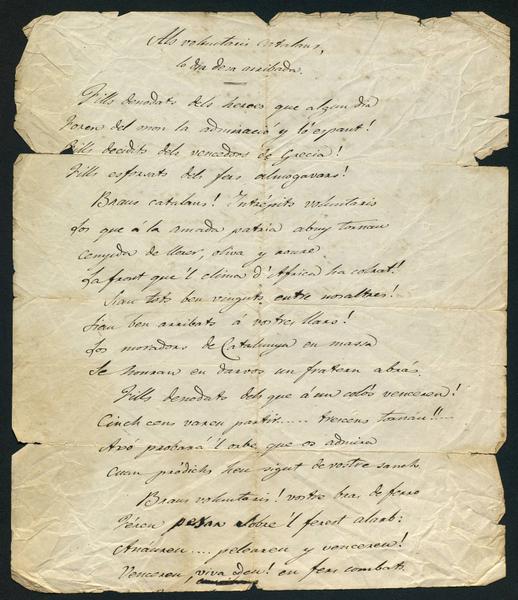 Als voluntaris catalans,
lo dia de sa arribada.
Fills denodats dels heroes que algun dia
Foren del mon la admiració y l'espant!
Fills decidits dels vencedors de Grecia!
Fills esforsats dels fers almogavars!
Braus catalans! Intrépits voluntaris
Los que á la amada patria abuy tornau
Cenyida de llorer, oliva y roure
La front que 'l clima d'Africa ha colrat!
Siau tots ben vinguts entre nosaltres!
Siau ben arribats á vostres llars!
Los moradors de Catalunya en massa
Se honran en darvos un fratern abrás.
Fills denodats dels que á un colós venceren!
Cinch cens vareu partir..... trescens tornáu!!...
Axó probará 'l orbe que os admira
Cuan pródichs heu sigut de vostre sanch.
Braus voluntaris! vostre bras de ferro
Féreu pesar sobre 'l ferest alarb:
Anáureu.... peleareu y vencereu!
Venceren, viva Deu! en fers combats.